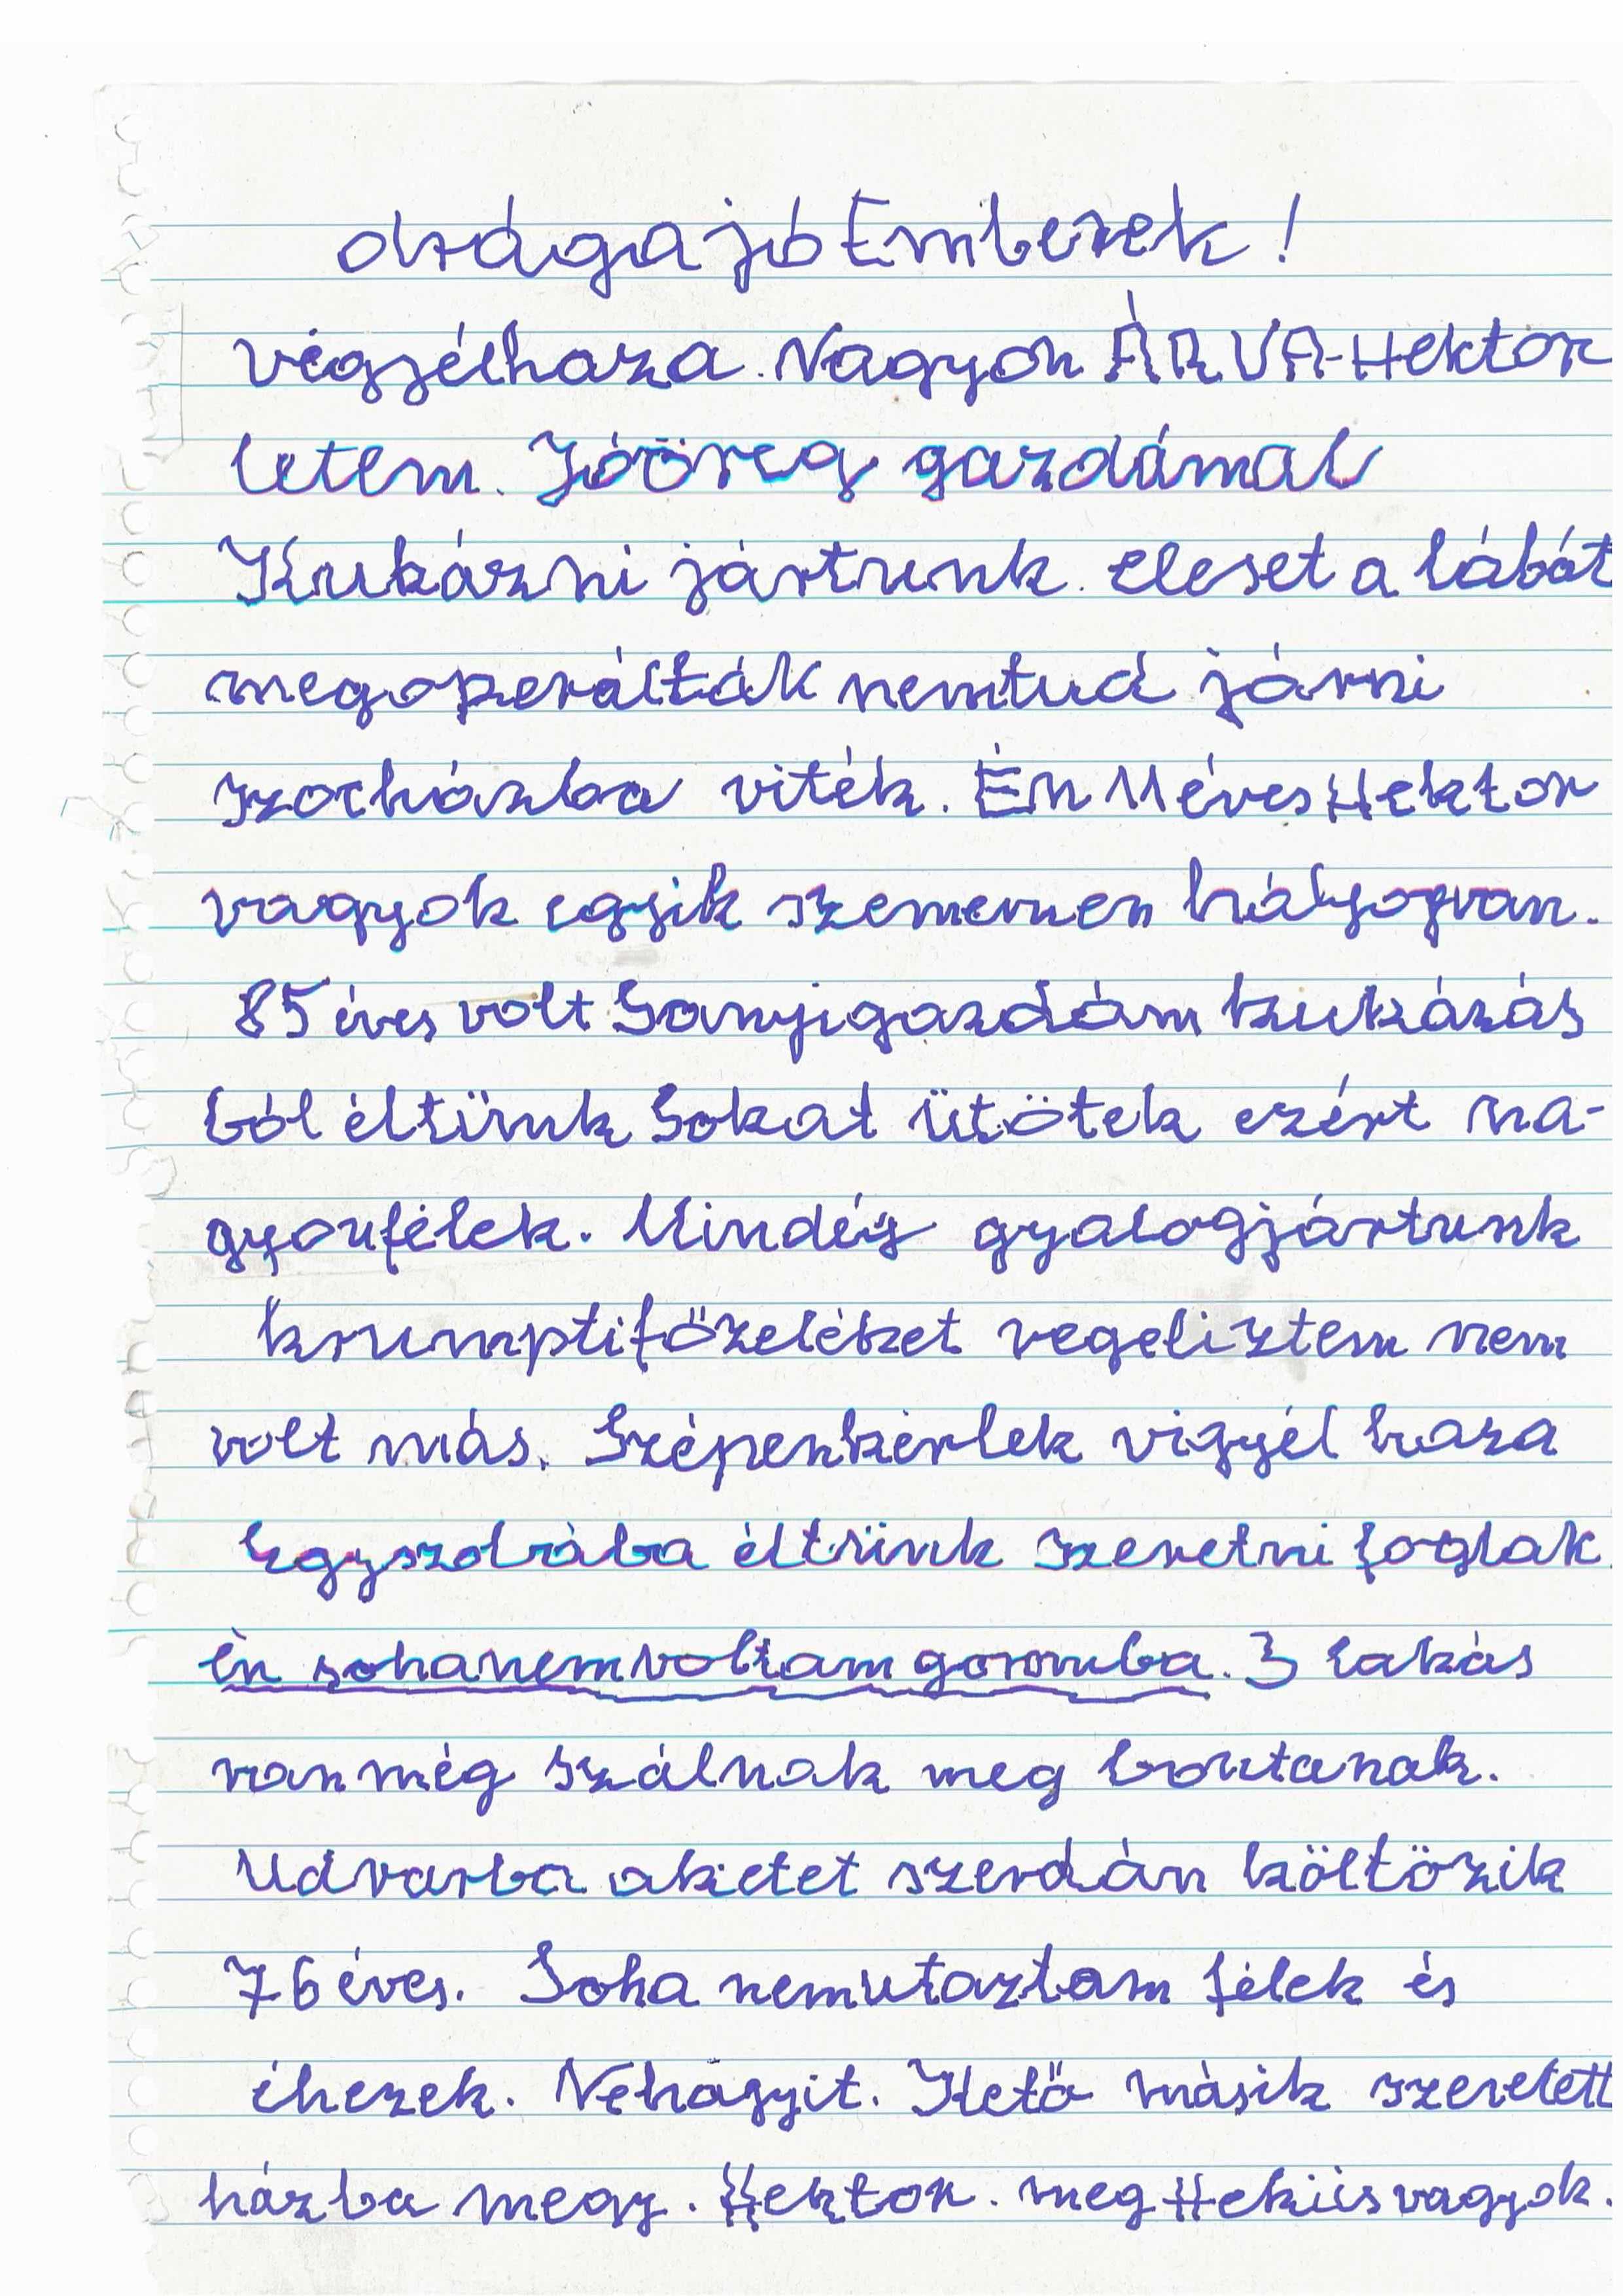 drága jó Emberek!
vigyélhaza. Nagyon ÁRVA-Hektor
letem. Jóöreg gazdámal
Kukázni jártunk. eleset a lábát
megoperálták nemtud járni
szocházba viték. ÉN 11 éves Hektor
vagyok egyik szememen hályogvan.
85 éves volt Sanyigazdám kukázás
ból éltünk Sokat ütötek ezért na-
gyonfélek. Mindég gyalogjártunk
krumptifőzeléket vegeliztem nem
volt más. Szépenkérlek vigyél haza
Egyszobába éltünk szeretni foglak
én sohanemvoltam goromba. 3 lakás
vanmég szálnak meg bontanak.
Udvarba aketet szerdán költözik
76 éves. Soha nemutaztam félek és
éhezek. Nehagyit. Kető másik szeretett
házba megy. Hektor. meg Hekiisvagyok.